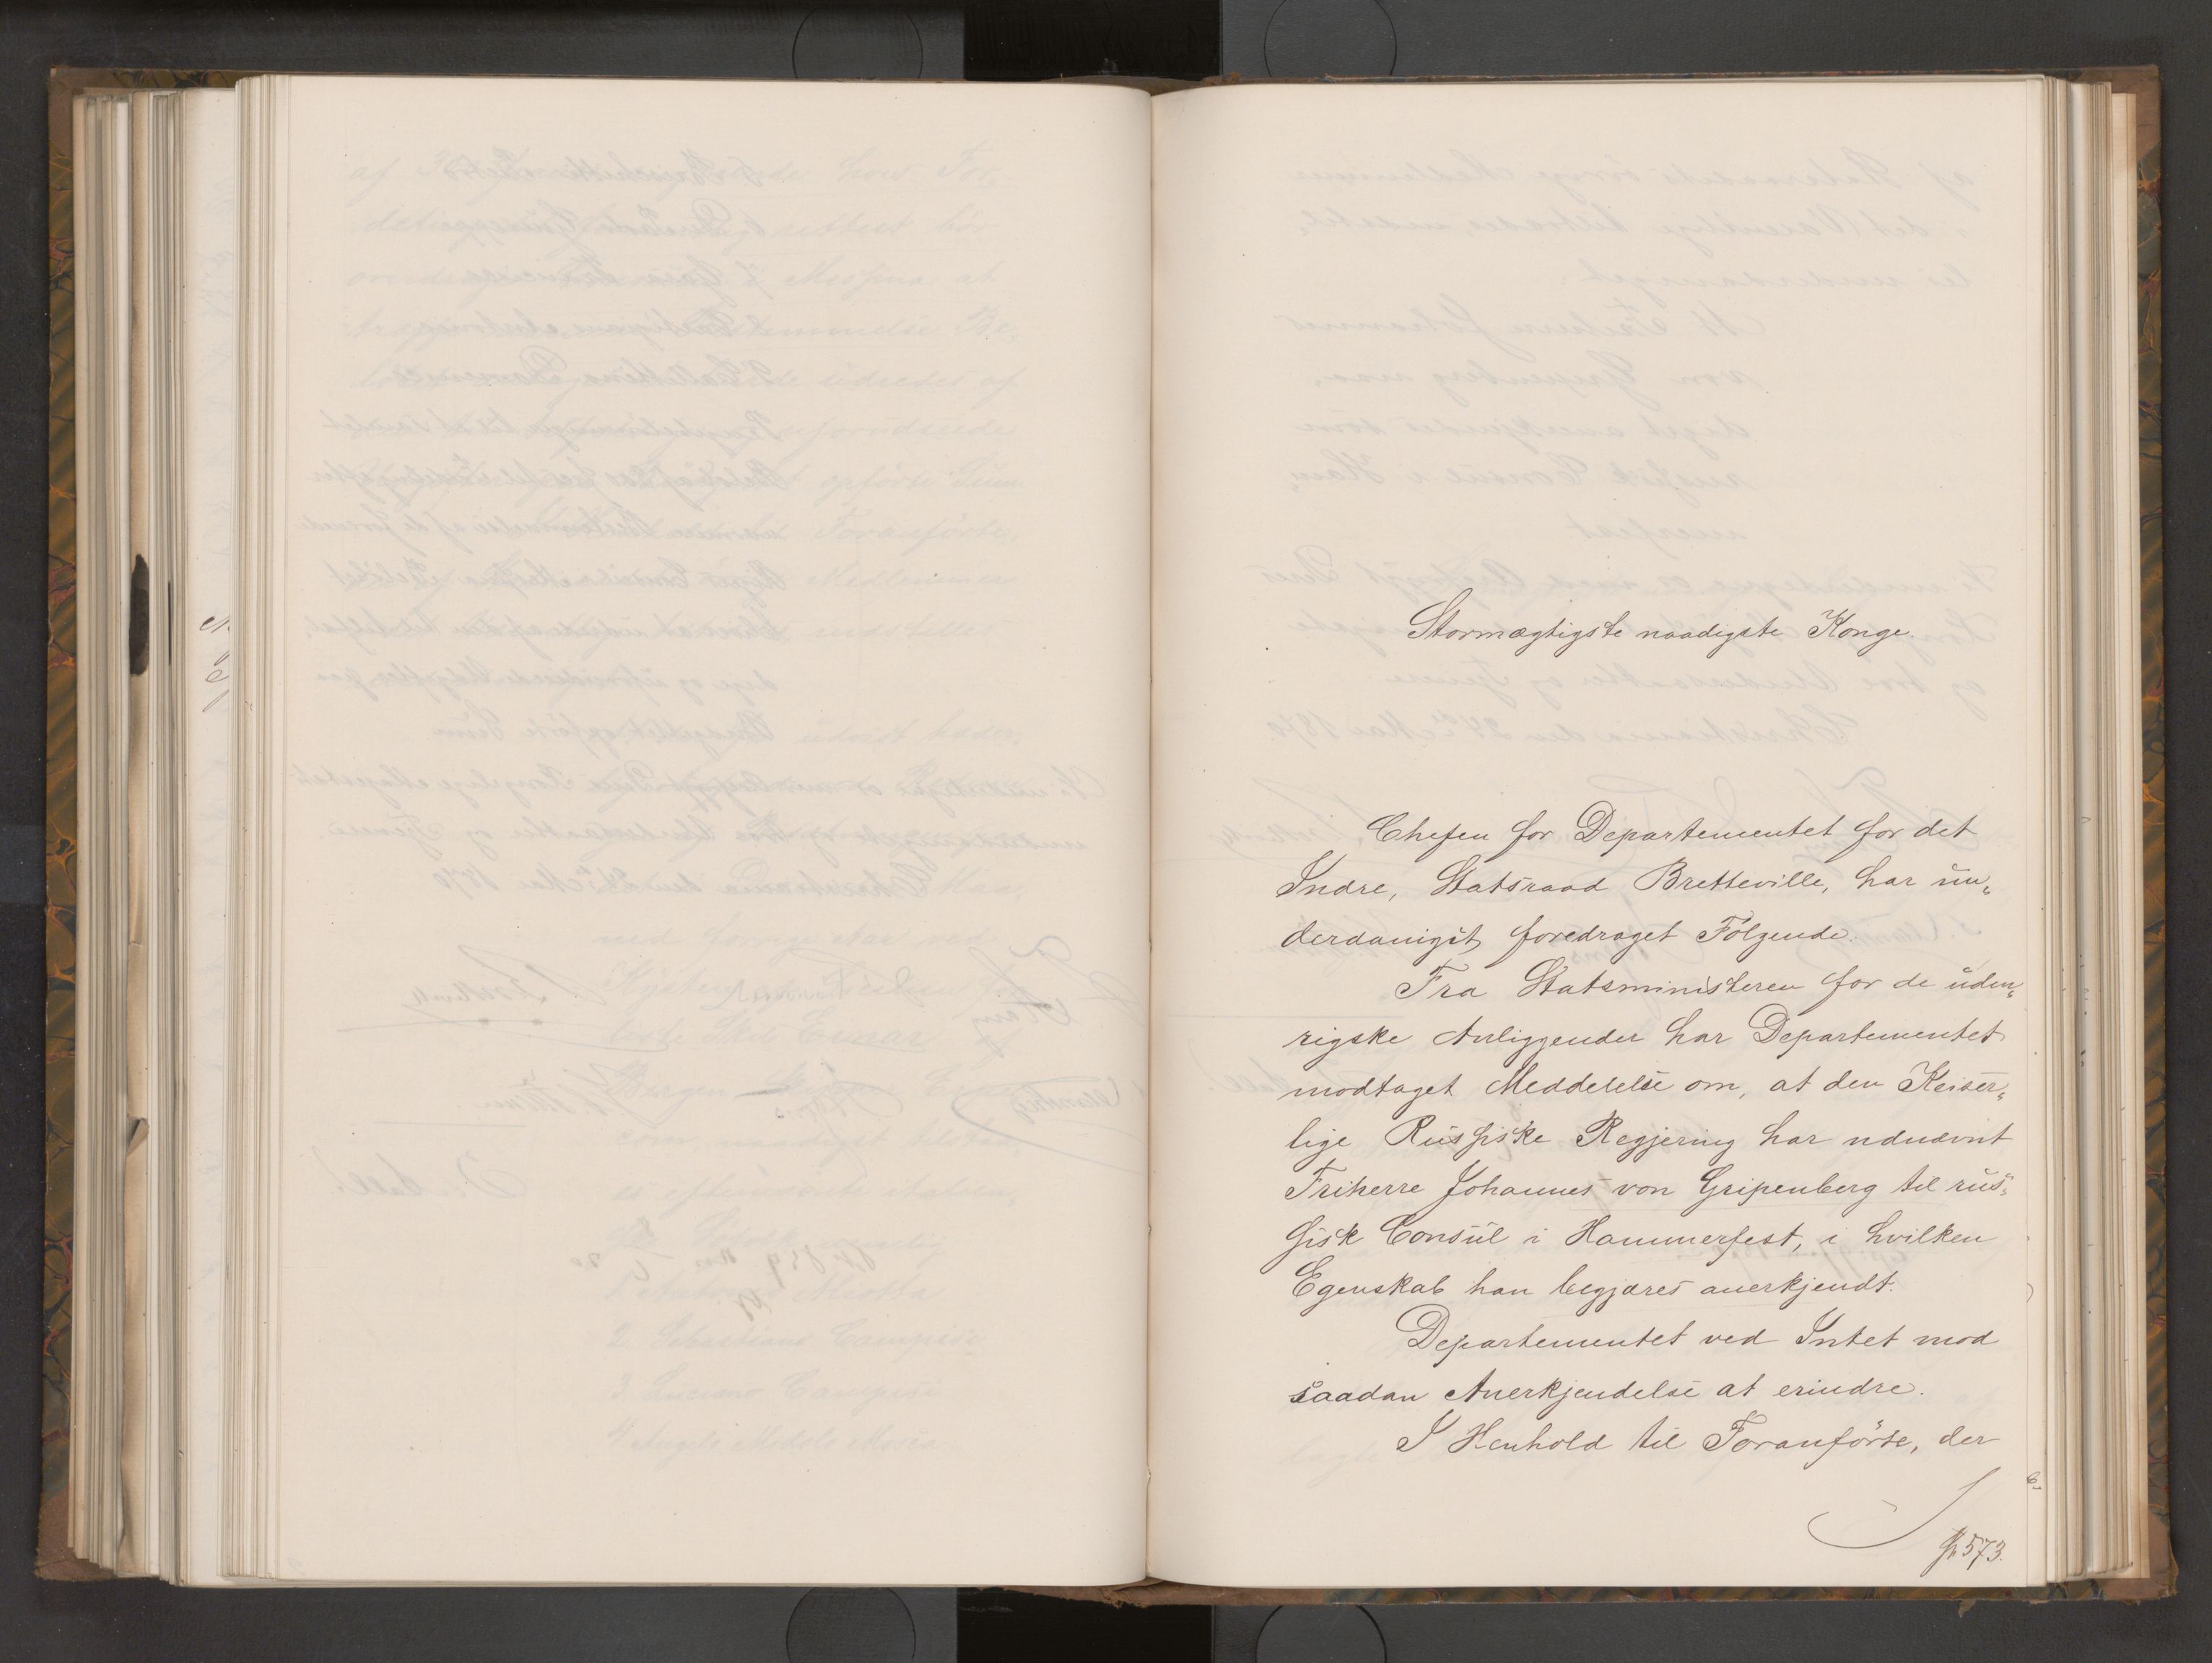 Stormægtigste naadigste Konge.
Chefen for Departementet for det
Indre, Statsraad Bretteville, har un„
derdanigst foredraget Følgende.
Fra Statsministeren for de uden„
rigske Anliggender har Departementet
modtaget Meddelelse om, at den Keiser„
lige Russiske Regjering har udnævnt
Friherre Johannes von Gripenberg til rus„
sisk Consul i Hammerfest, i hvilken
Egenskab han begjæres anerkjendt.
Departementet ved Intet mod
saadan Anerkjendelse at erindre.
I Henhold til Foranførte, der
573.